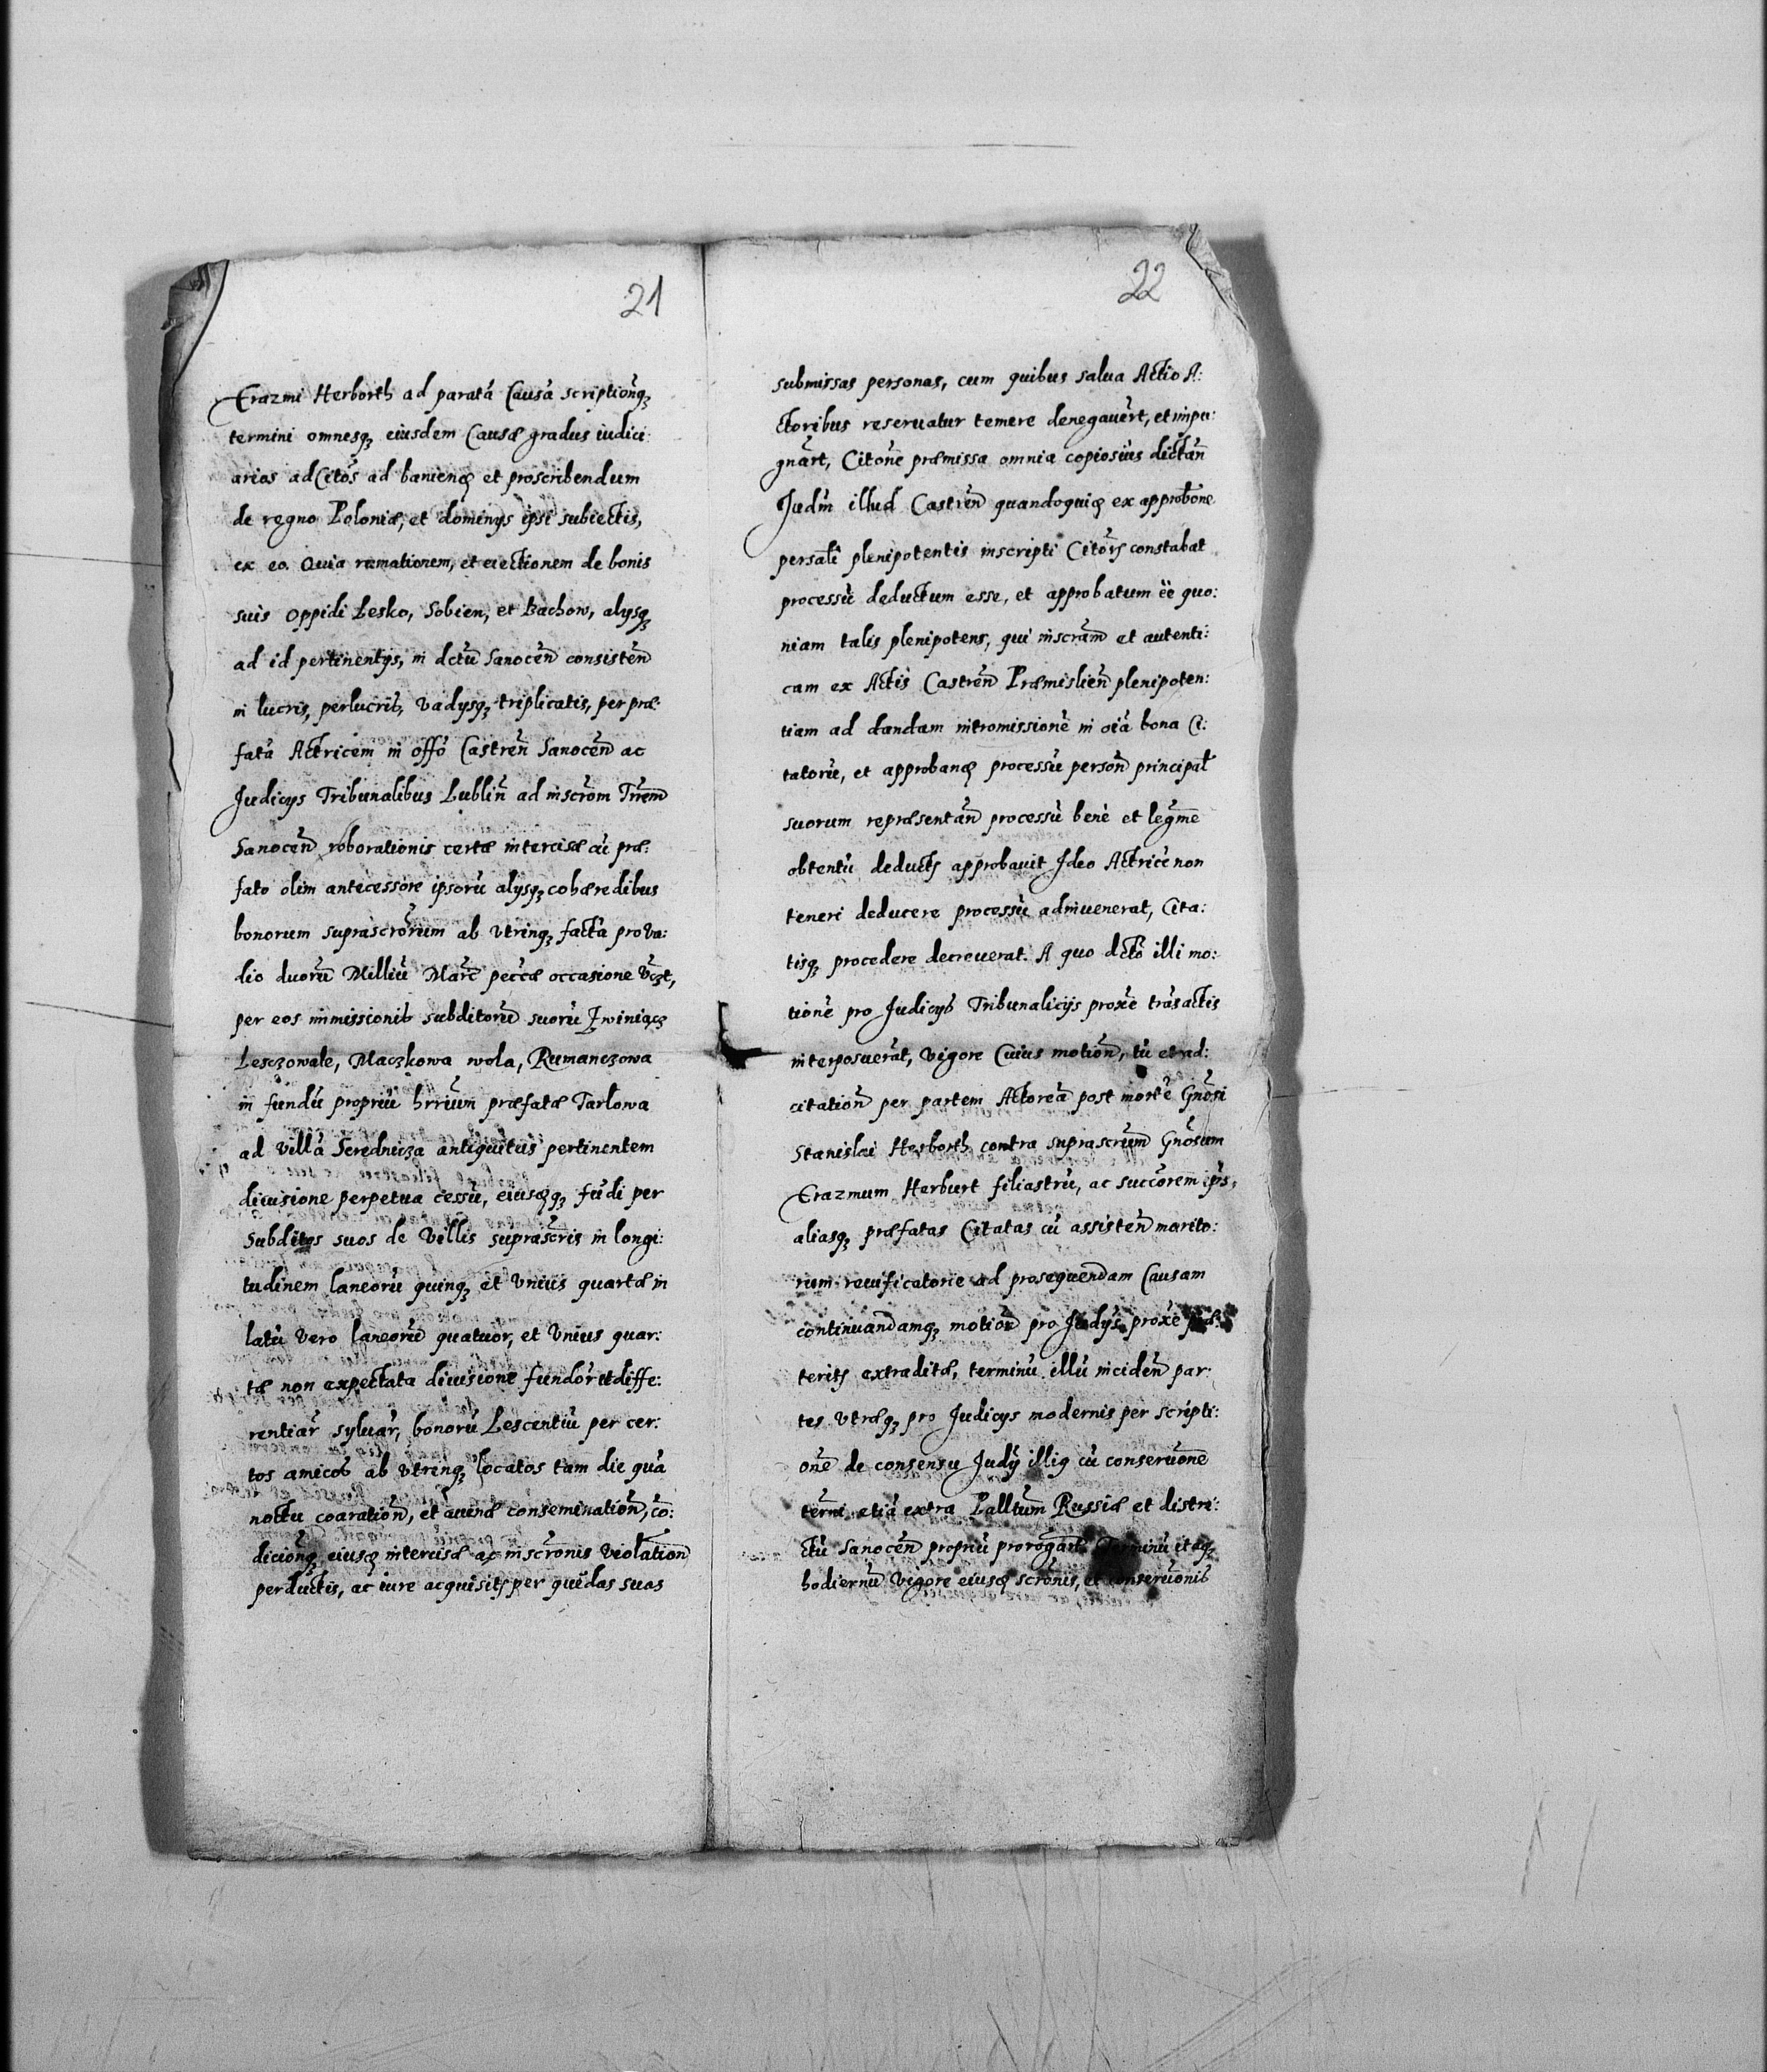 21
Erazmi Herborth ad paratã Causã scriptionẽqꝫ
termini omnesqꝫ eiusdem Causæ gradus iudici:
arios ad Citos̃ ad banienđ et proscribendum
de regno Poloniæ, et dominijs ipsi subiectis,
ex eo. Quia rumationem, et eiectionem de bonis
suis oppidi Lesko, Sobien, et Bachow, alijsqꝫ
ad id pertinentijs, in dctũ Sanoceñ consisteñ
in lucris, perlucris, Vadijsqꝫ triplicatis, per præ:
fatã Actricem in offõ Castreñ Sanoceñ ac
Judicijs Tribunalibus Lubliñ ad inscrõm Trr̃em
Sanoceñ roborationis certæ intercisæ cũ præ:
fato olim antecessore ipsorũ alijsqꝫ cohæredibus
bonorum suprascrõrum ab vtrinqꝫ facta pro Va:
dio duorũ Milliũ Marc̃ pecc̃æ occasione Vcꝫt,
per eos immissionis subditorũ suorũ Jwiniacꝫ
Lesczowale, Maczkowa wola, Rumanczowa
in fundũ propriũ hrrium̃ præfatæ Tarlowa
ad villã Serednicza antiquitus pertinentem
diuisione perpetua cessũ, eiusđqꝫ fũdi per
Subditos suos de Villis suprascr̃is in longi:
tudinem laneorũ quinqꝫ et Vnius quartæ in
latũ vero laneorũ quatuor, et Vnius quar:
tæ non expectata diuisione fundor̃ et diffe:
rentiar̃ syluar̃, bonorũ Lescentiũ per cer:
tos amicos ab vtrinqꝫ locatos tam die quã
noctu coaratioñ, et auenæ conseminatioñ, cõ:
dicioñqꝫ eiusđ intercisæ ac inscrõnis violatioñ
perductis, ac iure acquisitꝭ per quãdas suas
22
submissas personas, cum quibus salua Actio A:
ctoribus reseruatur temere denegauer̃t, et impu:
gnar̃t, Citone præmissa omnia copiosius dictañ
Judm̃ illud Castreñ quandoquiđ ex approbõne
persalĩ plenipotentis inscripti Citorꝭ constabat
processũ deductum esse, et approbatum ẽẽ quo:
niam talis plenipotens, qui inscrãm et autenti:
cam ex Actis Castreñ Præmislieñ plenipoten:
tiam ad dandam intromissionẽ in oiã bona Ci:
tatorũ, et approbanđ processũ persoñ principał
suorum repræsentañ processũ benè et legm̃e
obtentũ deductꝭ approbauit Jdeo Actricẽ non
teneri deducere processũ adinuenerat, Cita:
tisqꝫ procedere decreuerat. A quo dctõ illi mo:
tionẽ pro Judicijs Tribunalicijs proxẽ trãsactis
interposuerãt, vigore Cuius motioñ, tũ et ad:
citatioñ per partem Actoreã post mortẽ Gñosi
Stanislai Herborth contra suprascrũm Gñosum
Erazmum Herburt filiastrũ, ac succorem ips̃,
aliasqꝫ præfatas Citatas cũ assisteñ marito:
rum reuificatorie ad prosequendam Causam
continuandamqꝫ motioñ pro Judijs proxẽ
teritꝭ extraditæ, terminũ illũ incideñ par:
tes vtræqꝫ pro Judicijs modernis per scripti:
onẽ de consensu Judij illiꝰ cũ conseruõne
term̃i etiã extra Palltum̃ Russiæ et distri:
ctũ Sanoceñ propriũ prorogar̃t. Terminũ itaqꝫ
hodiernũ vigore eiusđ scrõnis, et conseruõnis